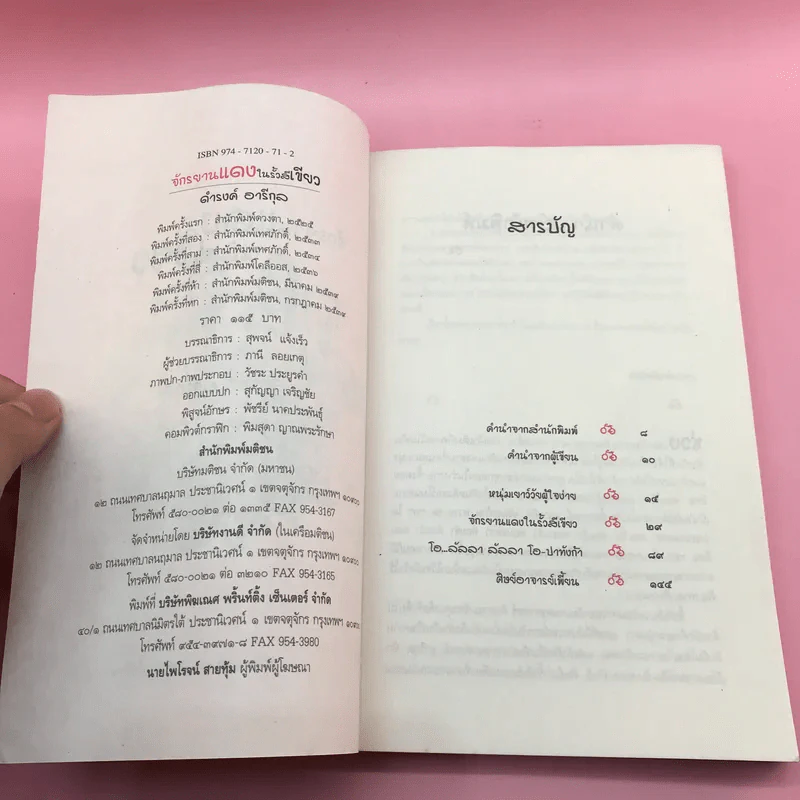 ISBN 974 - 7120 - 71 - 2
จักรยานแดงในรั้วสีเขียว
ดำรงค์ อารีกุล
พิมพ์ครั้งแรก : สำนักพิมพ์ดวงตา, ๒๕๒๕
พิมพ์ครั้งที่สอง : สำนักพิมพ์เทศภักดิ์, ๒๕๓๓
พิมพ์ครั้งที่สาม : สำนักพิมพ์เทศภักดิ์, ๒๕๓๔
พิมพ์ครั้งที่สี่ : สำนักพิมพ์โคลีออส, ๒๕๓๖
พิมพ์ครั้งที่ห้า : สำนักพิมพ์มติชน, มีนาคม ๒๕๓๙
พิมพ์ครั้งที่หก : สำนักพิมพ์มติชน, กรกฎาคม ๒๕๓๙
ราคา ๑๑๕ บาท
บรรณาธิการ : สุพจน์ แจ้งเร็ว
ผู้ช่วยบรรณาธิการ : ภานี ลอยเกตุ
ภาพปก-ภาพประกอบ : วัชระ ประยูรคำ
ออกแบบปก : สุกัญญา เจริญชัย
พิสูจน์อักษร : พัชรีย์ นาคประพันธุ์
คอมพิวต์กราฟิก : พิมสุดา ญาณพระรักษา
สำนักพิมพ์มติชน
บริษัทมติชน จำกัด (มหาชน)
๑๒ ถนนเทศบาลนฤมาล ประชานิเวศน์ ๑ เขตจตุจักร กรุงเทพฯ ๑๐๙๐๐
โทรศัพท์ ๕๘๐-๐๐๒๑ ต่อ ๑๒๓๕ FAX 954-3167
จัดจำหน่ายโดย บริษัทงานดี จำกัด (ในเครือมติชน)
๑๒ ถนนเทศบาลนฤมาล ประชานิเวศน์ ๑ เขตจตุจักร กรุงเทพฯ ๑๐๙๐๐
โทรศัพท์ ๕๘๐-๐๐๒๑ ต่อ ๓๒๑๐ FAX 954-3165
พิมพ์ที่ บริษัทพิฆเณศ พริ้นท์ติ้ง เซ็นเตอร์ จำกัด
๔๐/๑ ถนนเทศบาลนิมิตรใต้ ประชานิเวศน์ ๑ เขตจตุจักร กรุงเทพฯ ๑๐๙๐๐
โทรศัพท์ ๙๕๔-๓๙๗๑-๘ FAX 954-3980
นายไพโรจน์ สายทุ้ม ผู้พิมพ์ผู้โฆษณา
สารบัญ
คำนำจากสำนักพิมพ์ ๘
คำนำจากผู้เขียน ๑๐
หนุ่มเยาว์วัยผู้ใจง่าย ๑๕
จักรยานแดงในรั้วสีเขียว ๒๙
โอ...ลัลลา ลัลลา โอ-ปาทังก้า ๘๙
ศิษย์อาจารย์เพี้ยน ๑๔๕